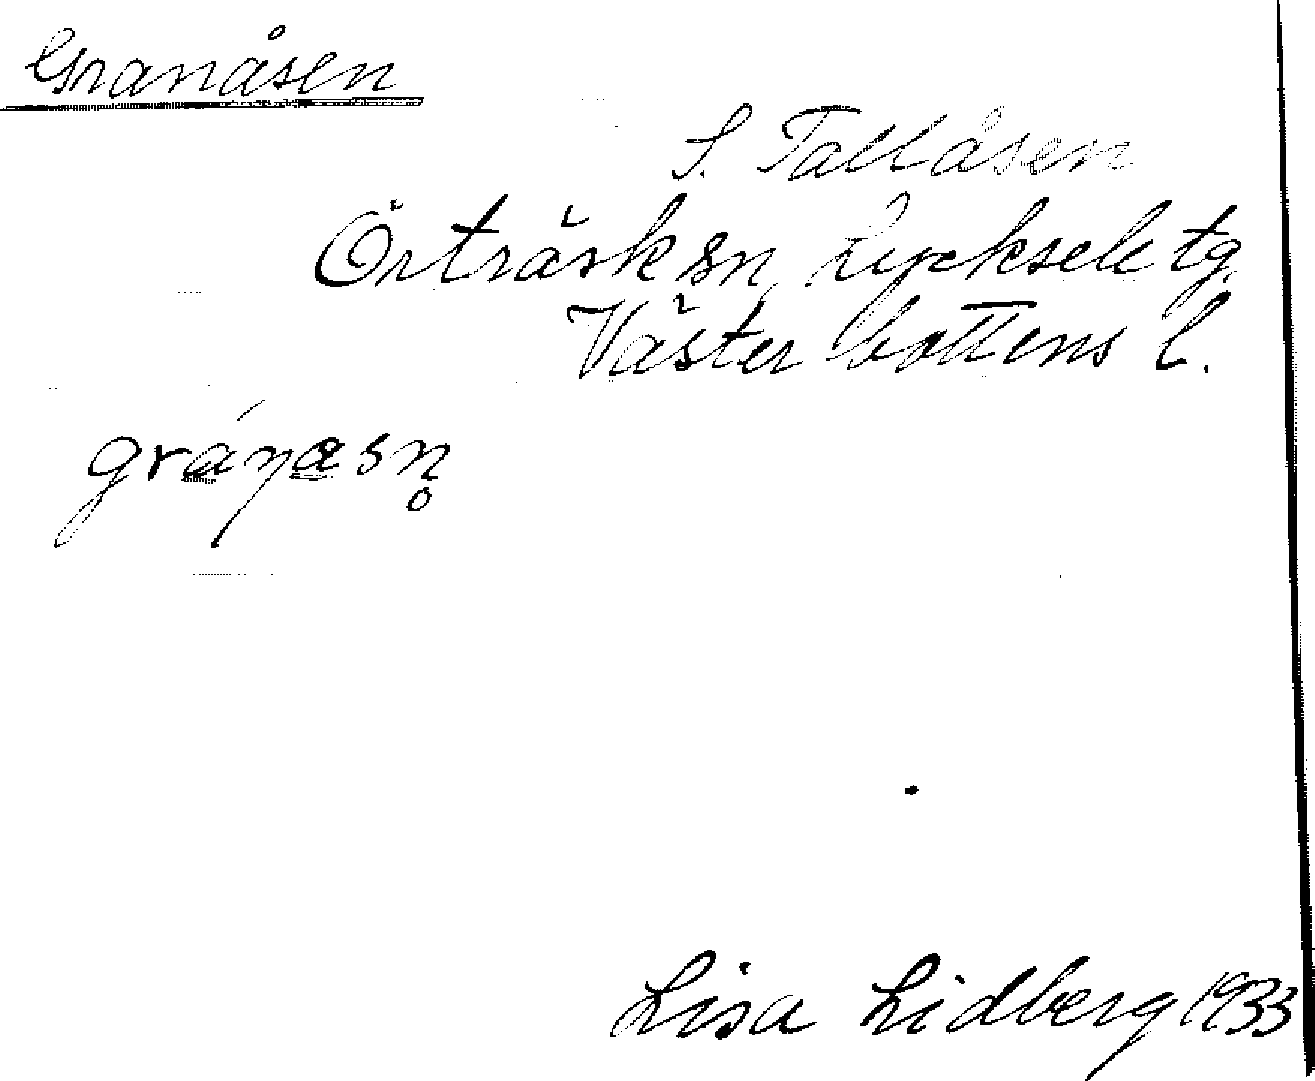 Granåsen
S. Tallåsen
Örträsk sn, Lycksele tg
Västerbottens l.
Lisa Lidberg 1933